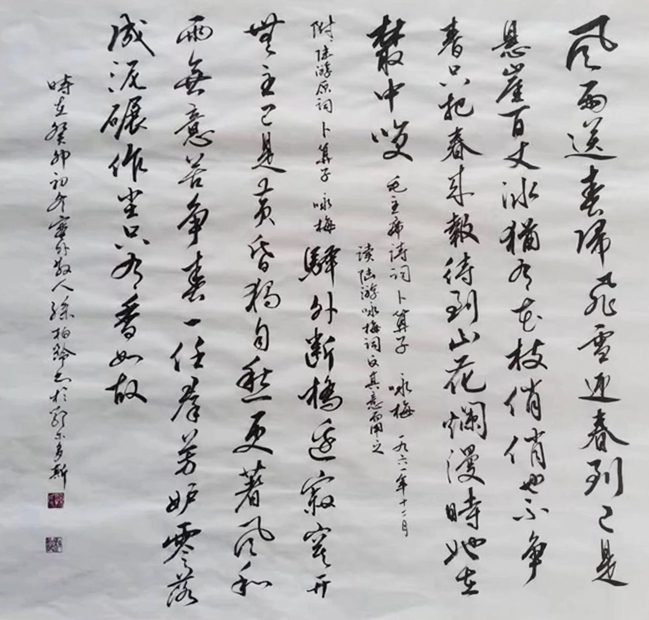 風雨送春歸飛雪迎春到已是
悬崖百丈冰猶有花枝俏俏也不争
春只把春来報待到山花爛漫時她在
叢中笑 毛主席诗词卜算子 咏梅 一九六一年十二月
读陆游咏梅词反其意而用之
附陆游原词卜算子咏梅 驛外断橋边寂寞开
無主已是黄昏獨自愁更著风和
雨無意苦争春一任群芳妒零落
成泥碾作尘只有香如故
時在癸卯初冬塞外散人柏於鄂尔多斯